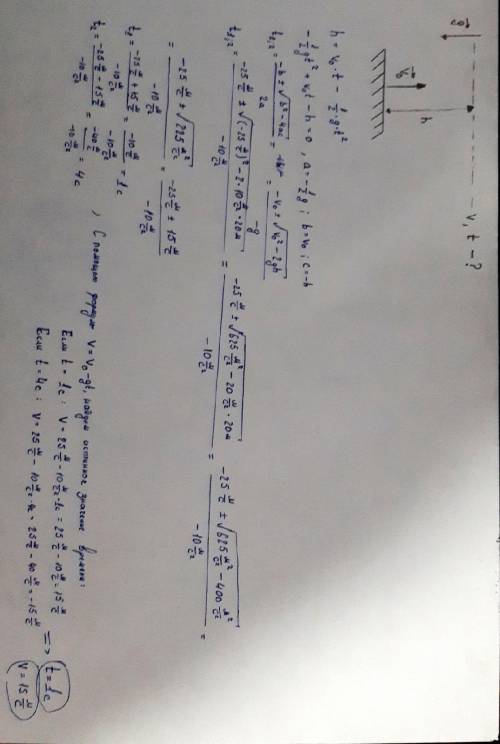 g⃗
v⃗₀
h
v, t - ?
h = v₀·t - ½·g·t²
-½gt² + v₀t - h = 0, a = -½g; b = v₀; c = -h
t₁,₂ = (-b ± √(b² - 4ac)) / 2a = (-v₀ ± √(v₀² - 2gh)) / -g
t₁,₂ = (-25 м/с ± √((-25 м/с)² - 2·10 м/с²·20м)) / -10 м/с² = (-25 м/с ± √(625 м²/с² - 20 м/с²·20м)) / -10 м/с² = (-25 м/с ± √(625 м²/с² - 400 м²/с²)) / -10 м/с² =
= (-25 м/с ± √(225 м²/с²)) / -10 м/с² = (-25 м/с ± 15 м/с) / -10 м/с²
t₁ = (-25 м/с + 15 м/с) / -10 м/с² = (-10 м/с) / -10 м/с² = 1с
t₂ = (-25 м/с - 15 м/с) / -10 м/с² = (-40 м/с) / -10 м/с² = 4с
, С помощью формулы v = v₀ - gt, найдем истинное значение времени:
Если t = 1с: v = 25 м/с - 10 м/с²·1с = 25 м/с - 10 м/с = 15 м/с
Если t = 4с: v = 25 м/с - 10 м/с²·4с = 25 м/с - 40 м/с = -15 м/с
=> t = 1с
v = 15 м/с